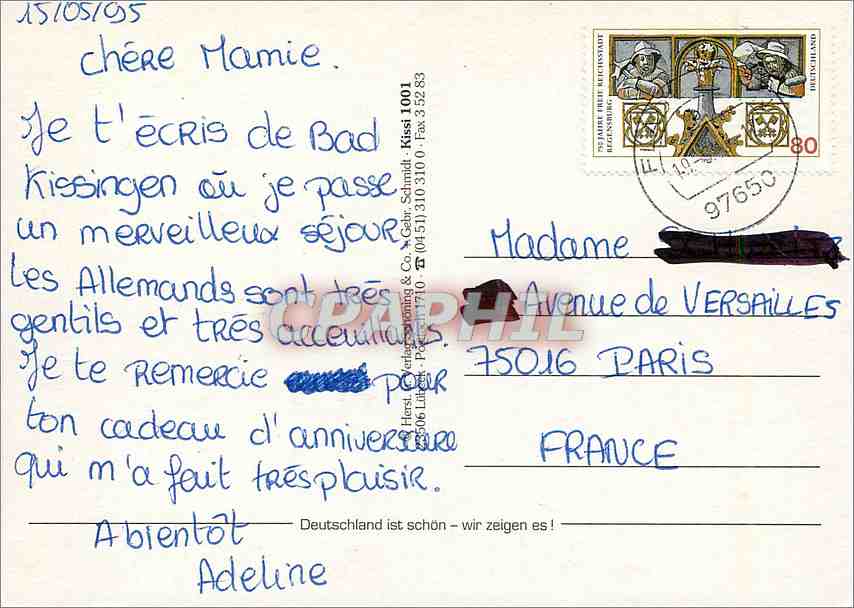 15/05/95
Chére Mamie.
Je t'écris de Bad
Kissingen où je passe
un merveilleux séjour
Les Allemands sont trés
gentils et trés acceuillants.
Je te remercie pour
ton cadeau d'anniversaire
qui m'a fait trés plaisir.
A bientôt
Adeline
Deutschland ist schön – wir zeigen es!
Herst. Verlag Schöning & Co. + Gebr. Schmidt · Kissi 1001
23506 Lübeck · Postfach 1710 · ☎ (04 51) 310 310 0 · Fax 3 52 83
750 JAHRE FREIE REICHSSTADT
REGENSBURG
DEUTSCHLAND
80
97650
Madame
Avenue de VERSAILLES
75016 PARIS
FRANCE
CPAPHIL